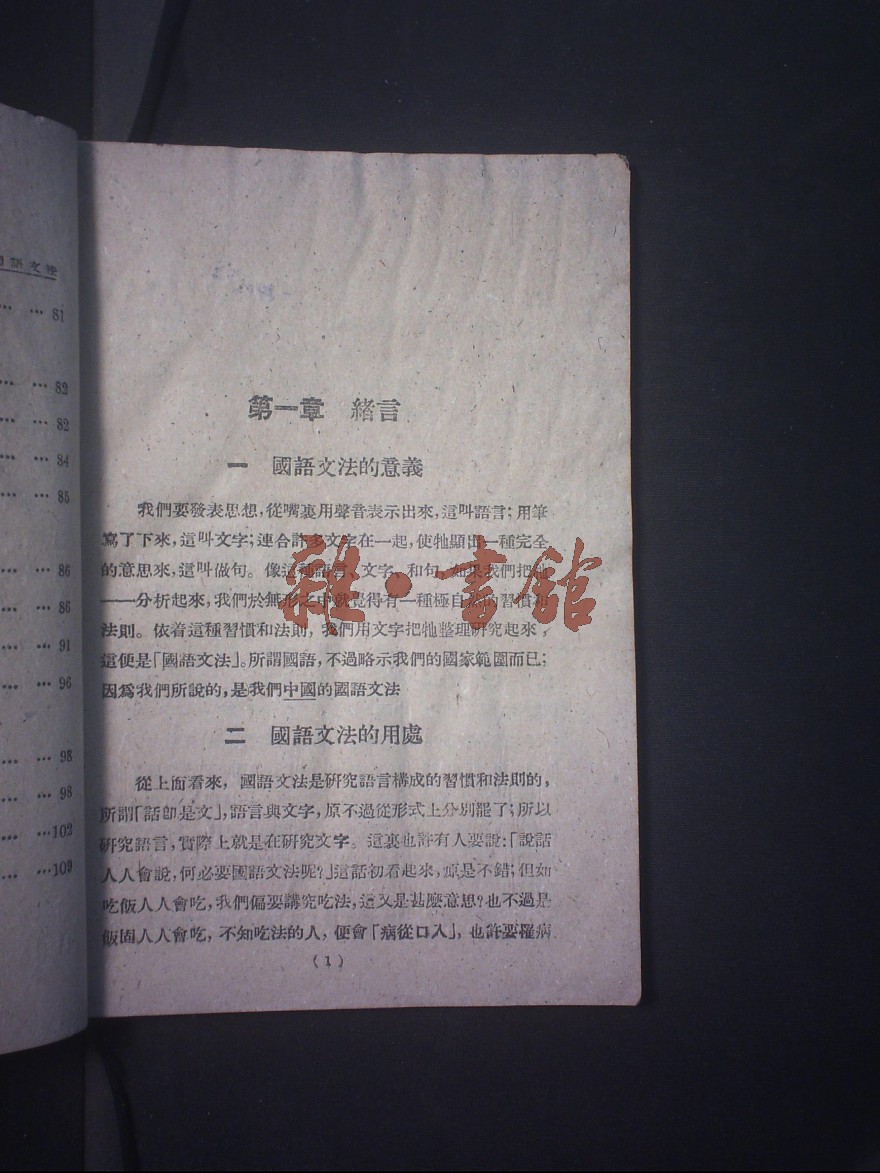 國語文法
… … 81
… … 82
… … 82
… … 84
… … 85
… … 86
… … 86
… … 91
… … 96
… … 98
… … 98
… …102
… …109
第一章　緒言
一　國語文法的意義
我們要發表思想，從嘴裏用聲音表示出來，這叫語言；用筆
寫了下來，這叫文字；連合許多文字在一起，使牠顯出一種完全
的意思來，這叫做句。像這種語言、文字、和句，如果我們把牠
一一分析起來，我們於無形之中就覺得有一種極自然的習慣和
法則。依着這種習慣和法則，我們用文字把牠整理研究起來，
這便是「國語文法」。所謂國語，不過略示我們的國家範圍而已；
因爲我們所說的，是我們中國的國語文法
二　國語文法的用處
從上面看來，國語文法是研究語言構成的習慣和法則的，
所謂「話卽是文」，語言與文字，原不過從形式上分別罷了；所以
研究語言，實際上就是在研究文字。這裏也許有人要說：「說話
人人會說，何必要國語文法呢？」這話初看起來，原是不錯；但如
吃飯人人會吃，我們偏要講究吃法，這又是甚麼意思？也不過是
飯固人人會吃，不知吃法的人，便會「病從口入」，也許要罹病
(1)
雜·書館